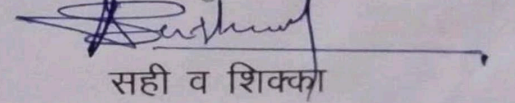 सही व शिक्का